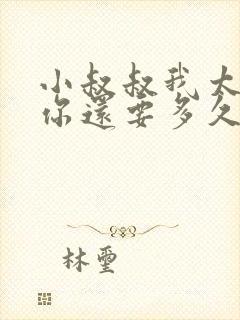 小叔叔我大
你還要多久
林璽